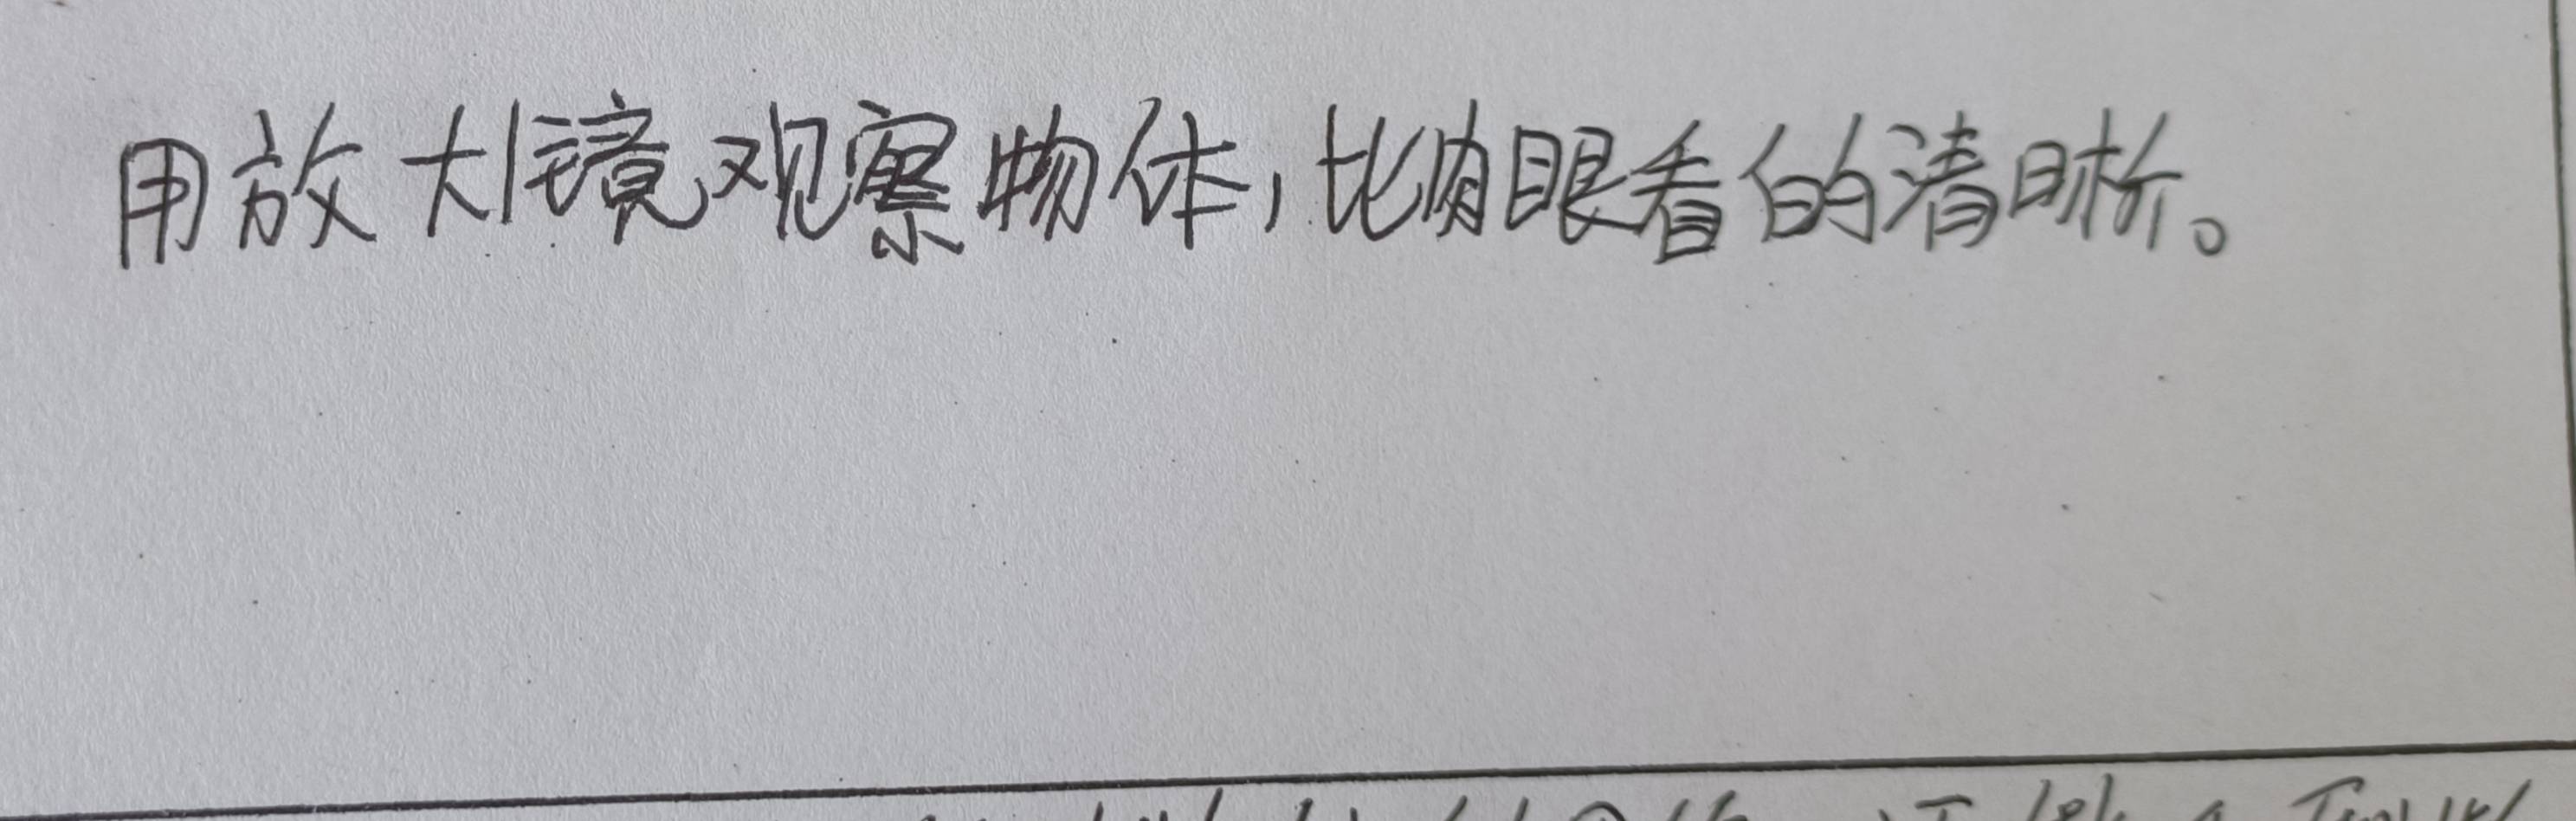 用放大镜观察物体，比肉眼看的清晰。